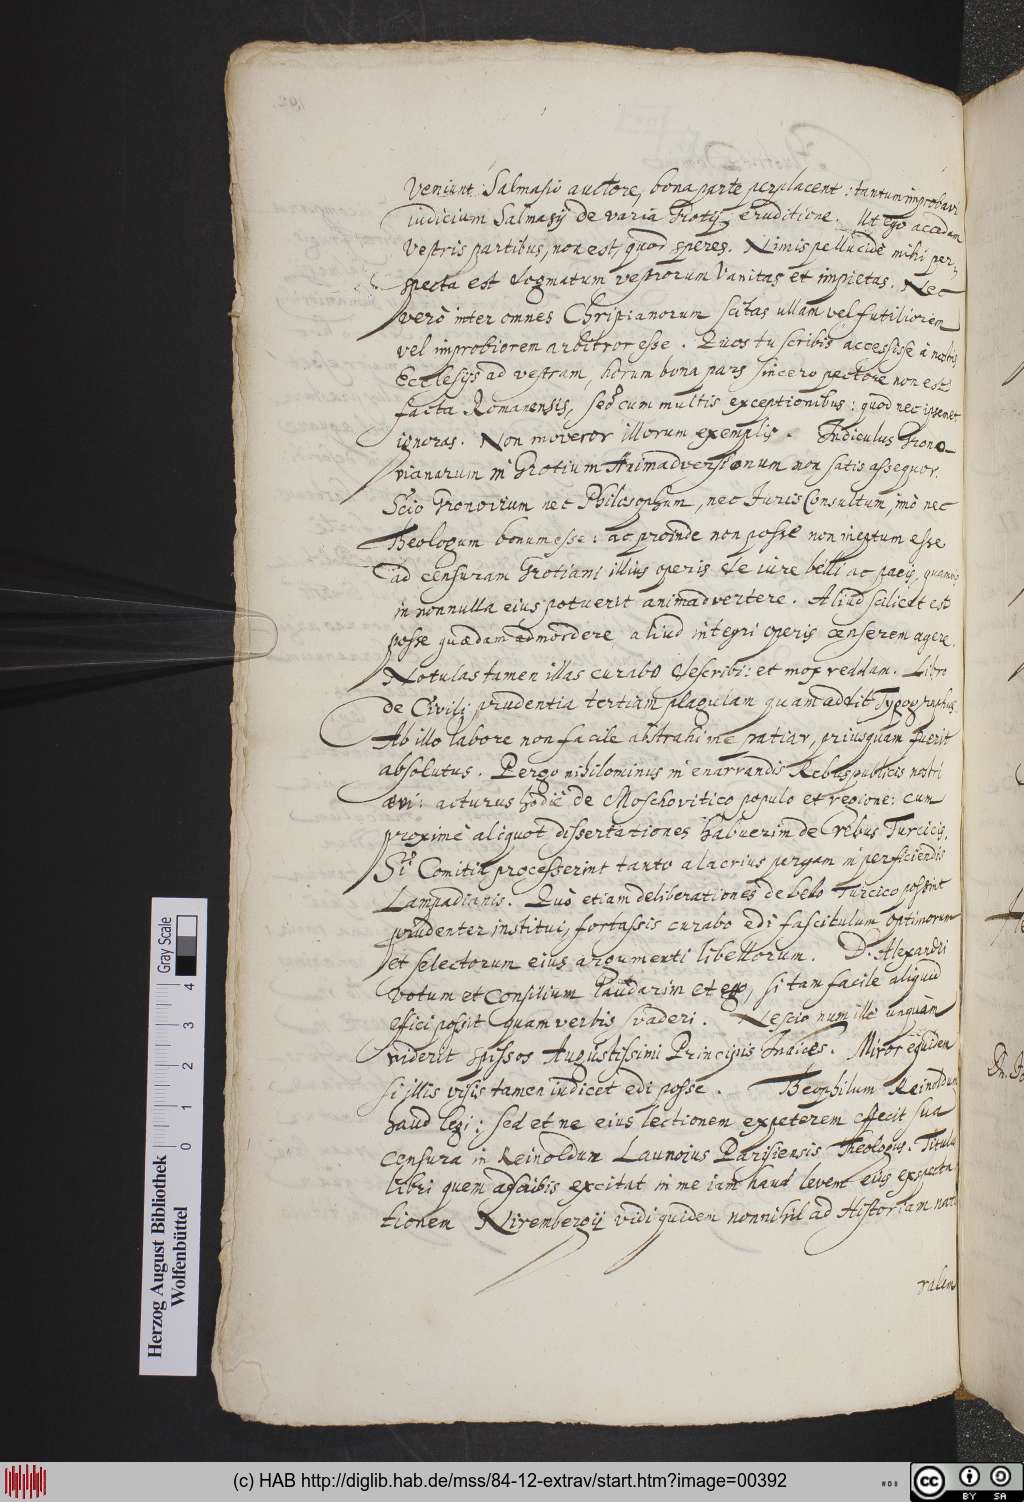 veniunt Salmasio auctore, bona parte perplacent: tantum improbavi
iudicium Salmasij de varia Grotij eruditione. Ut ego accedam
vestris partibus, non est, quod speres. Nimis pellucide mihi per-
specta est dogmatum vestrorum vanitas et impietas. Nec
verò inter omnes Christianorum sectas ullam vel futiliorem
vel improbiorem arbitror esse. Quos tu scribis accessisse à nostris
Ecclesijs ad vestram, horum bona pars sincero pectore non est
facta Romanensis, sed cum multis exceptionibus: quod nec ipsemet
ignoras. Non moveror illorum exemplis. Indiculus Grono-
vianarum in Grotium Animadversionum non satis assequor.
Scio Gronovium nec Philosophum, nec Juris Consultum, imò nec
Theologum bonum esse: ac proinde non posse non ineptum esse
ad censuram Grotiani illius operis de iure belli ac pacis, quamvis
in nonnulla eius potuerit animadvertere. Aliud scilicet est
posse quædam admordere, aliud integri operis censorem agere.
Notulas tamen illas curabo describi: et mox reddam. Libro
de Civili prudentia tertiam plagulam quam addit Typographus.
Ab illo labore non facile abstrahi me patiar, priusquam fuerit
absolutus. Pergo nihilominus in enarrandis Rebuspublicis nostri
ævi: acturus hodie de Moschovitico populo et regione: cum
proximè aliquot dissertationes habuerim de rebus Turcicis.
Si Comitia processerint tanto alacrius pergam in perficiendis
Lampadianis. Quò etiam deliberationes de bello Turcico possint
prudenter institui, fortassis curabo edi fascitulum optimorum
et selectorum eius argumenti libellorum. D. Alexandri
votum et consilium laudarim et ego, si tam facile aliquid
effici possit quam verbis svaderi. Nescio num ille unquam
viderit spissos Augustissimi Principis Indices. Miror equidem
si illis visis tamen indicet edi posse. Theophilum Reinoldum
haud legi: sed et ne eius lectionem expeterem effecit sua
censura in Reinoldum Launoius Parisiensis Theologus. Titulus
libri quem adscribis excitat in me iam haud levem eius exspecta-
tionem Nirembergij vidi quidem nonnihil ad Historiam natu-
ralem
Herzog August Bibliothek
Wolfenbüttel
Gray Scale
0 1 2 3 4
(c) HAB http://diglib.hab.de/mss/84-12-extrav/start.htm?image=00392
cc BY SA